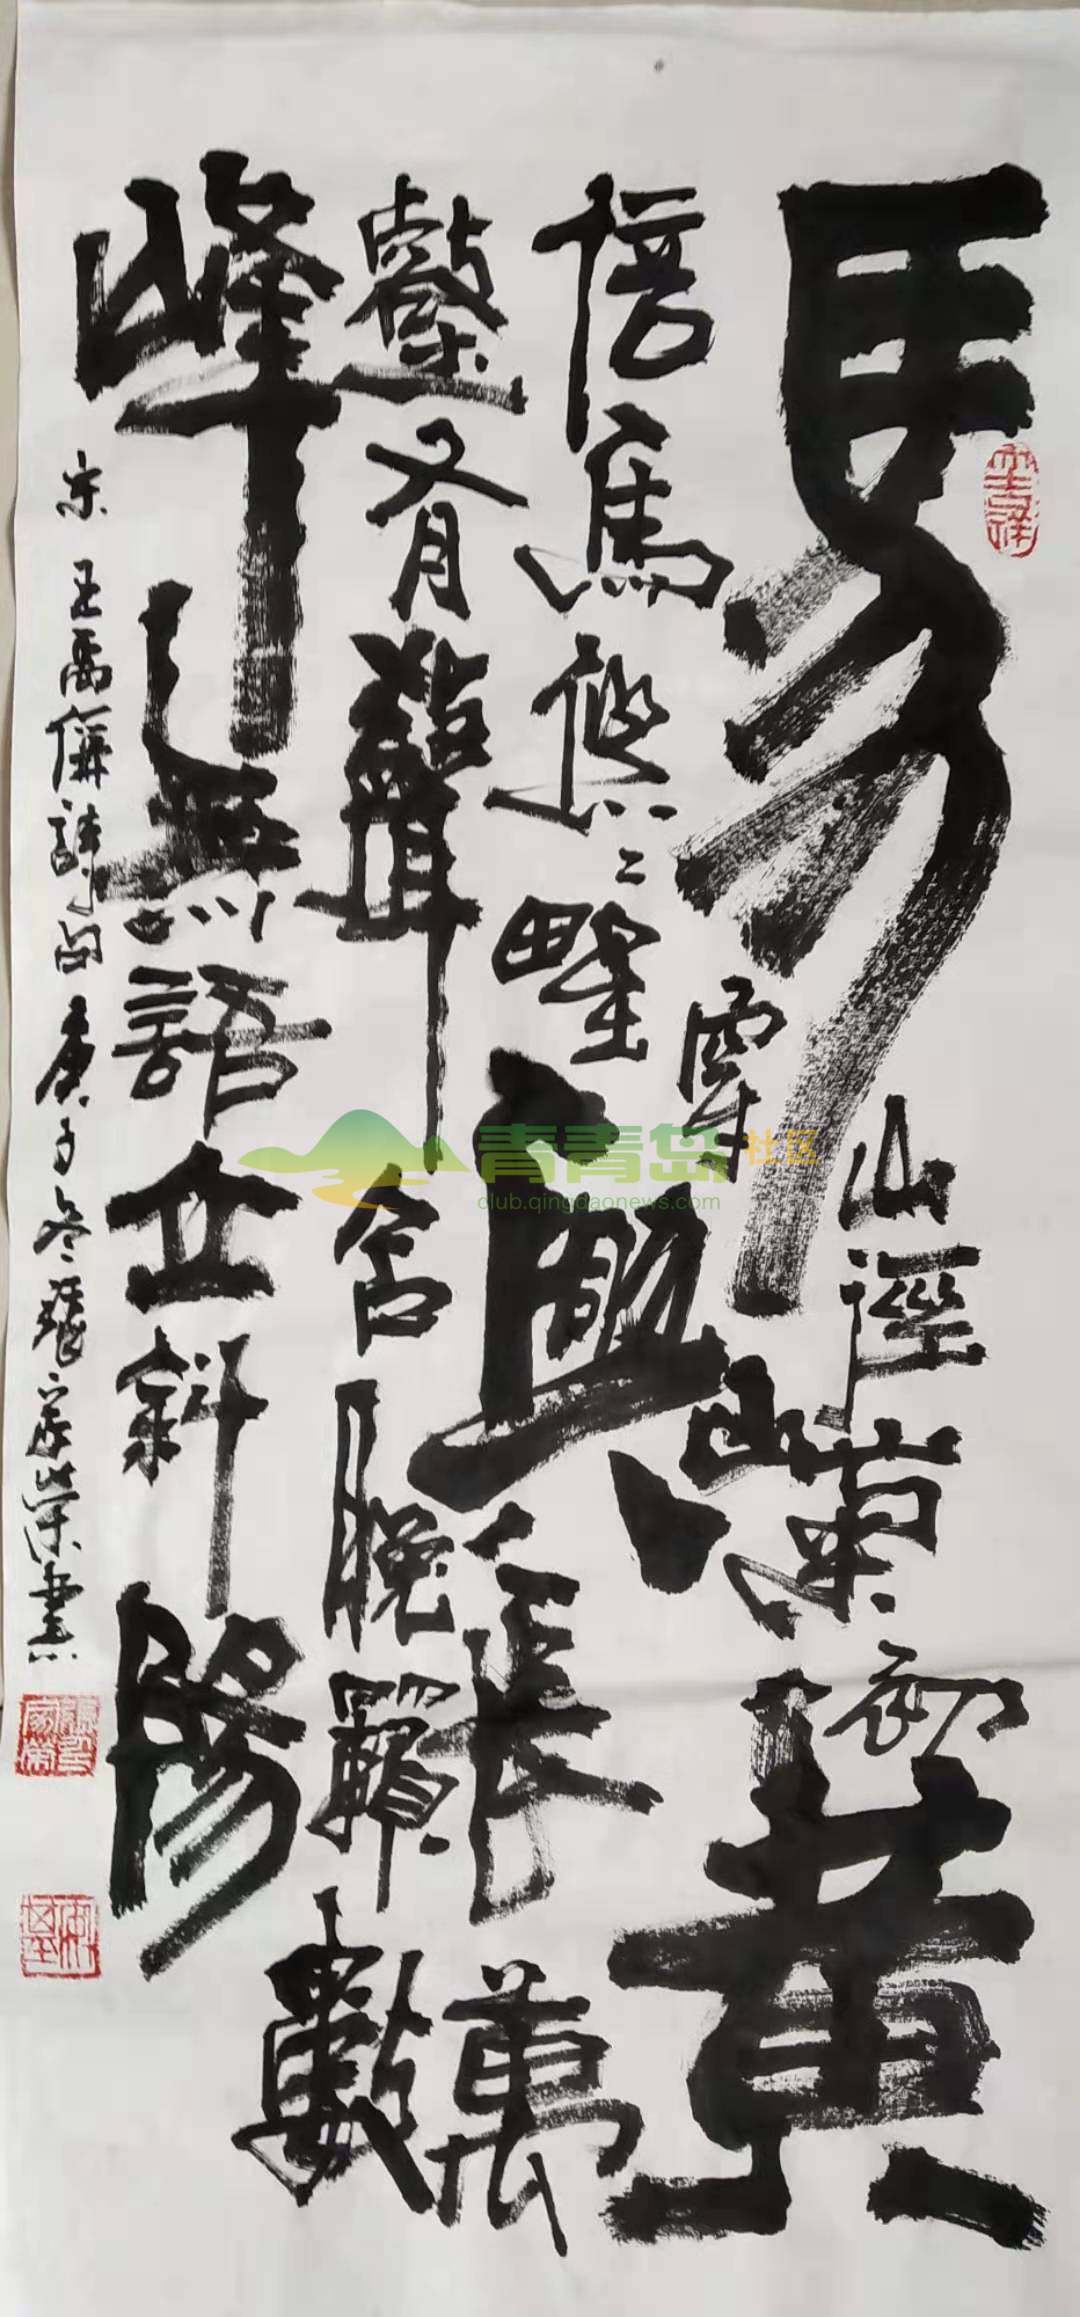 馬穿山徑菊初黄
信馬悠々野興長萬
壑有聲含晚籟數
峰無語立斜陽
宋王禹偁詩句庚子冬張家榮書
張家榮印
青青岛社区
club.qingdaonews.com